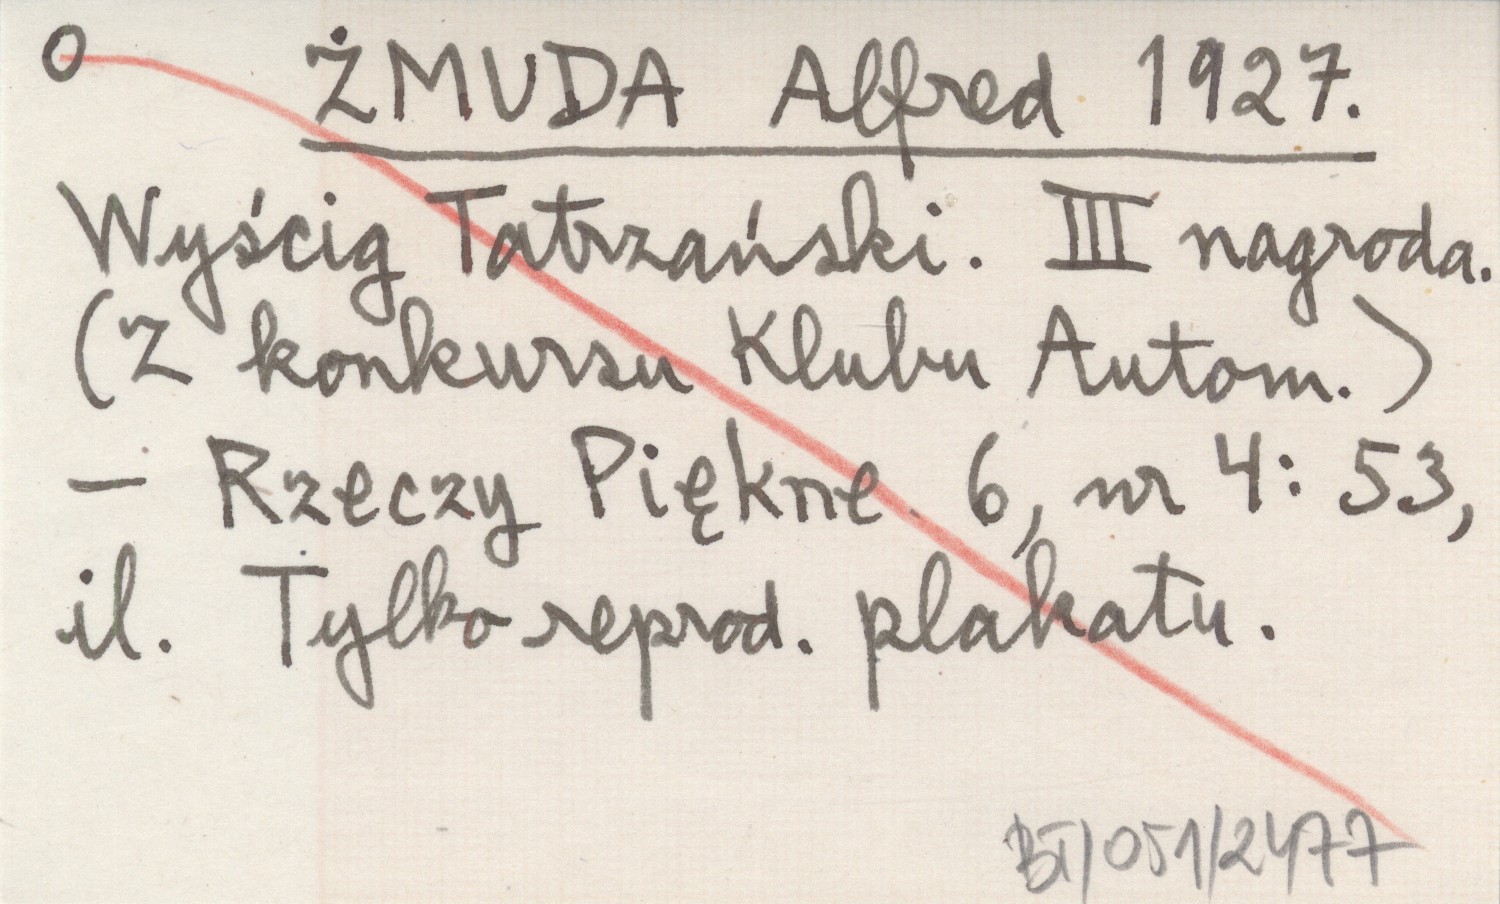 O ŻMUDA Alfred 1927.
Wyścig Tatrzański. III nagroda.
(Z konkursu Klubu Autom.)
— Rzeczy Piękne. 6, nr 4: 53,
il. Tylko reprod. plakatu.
BT/051/2477